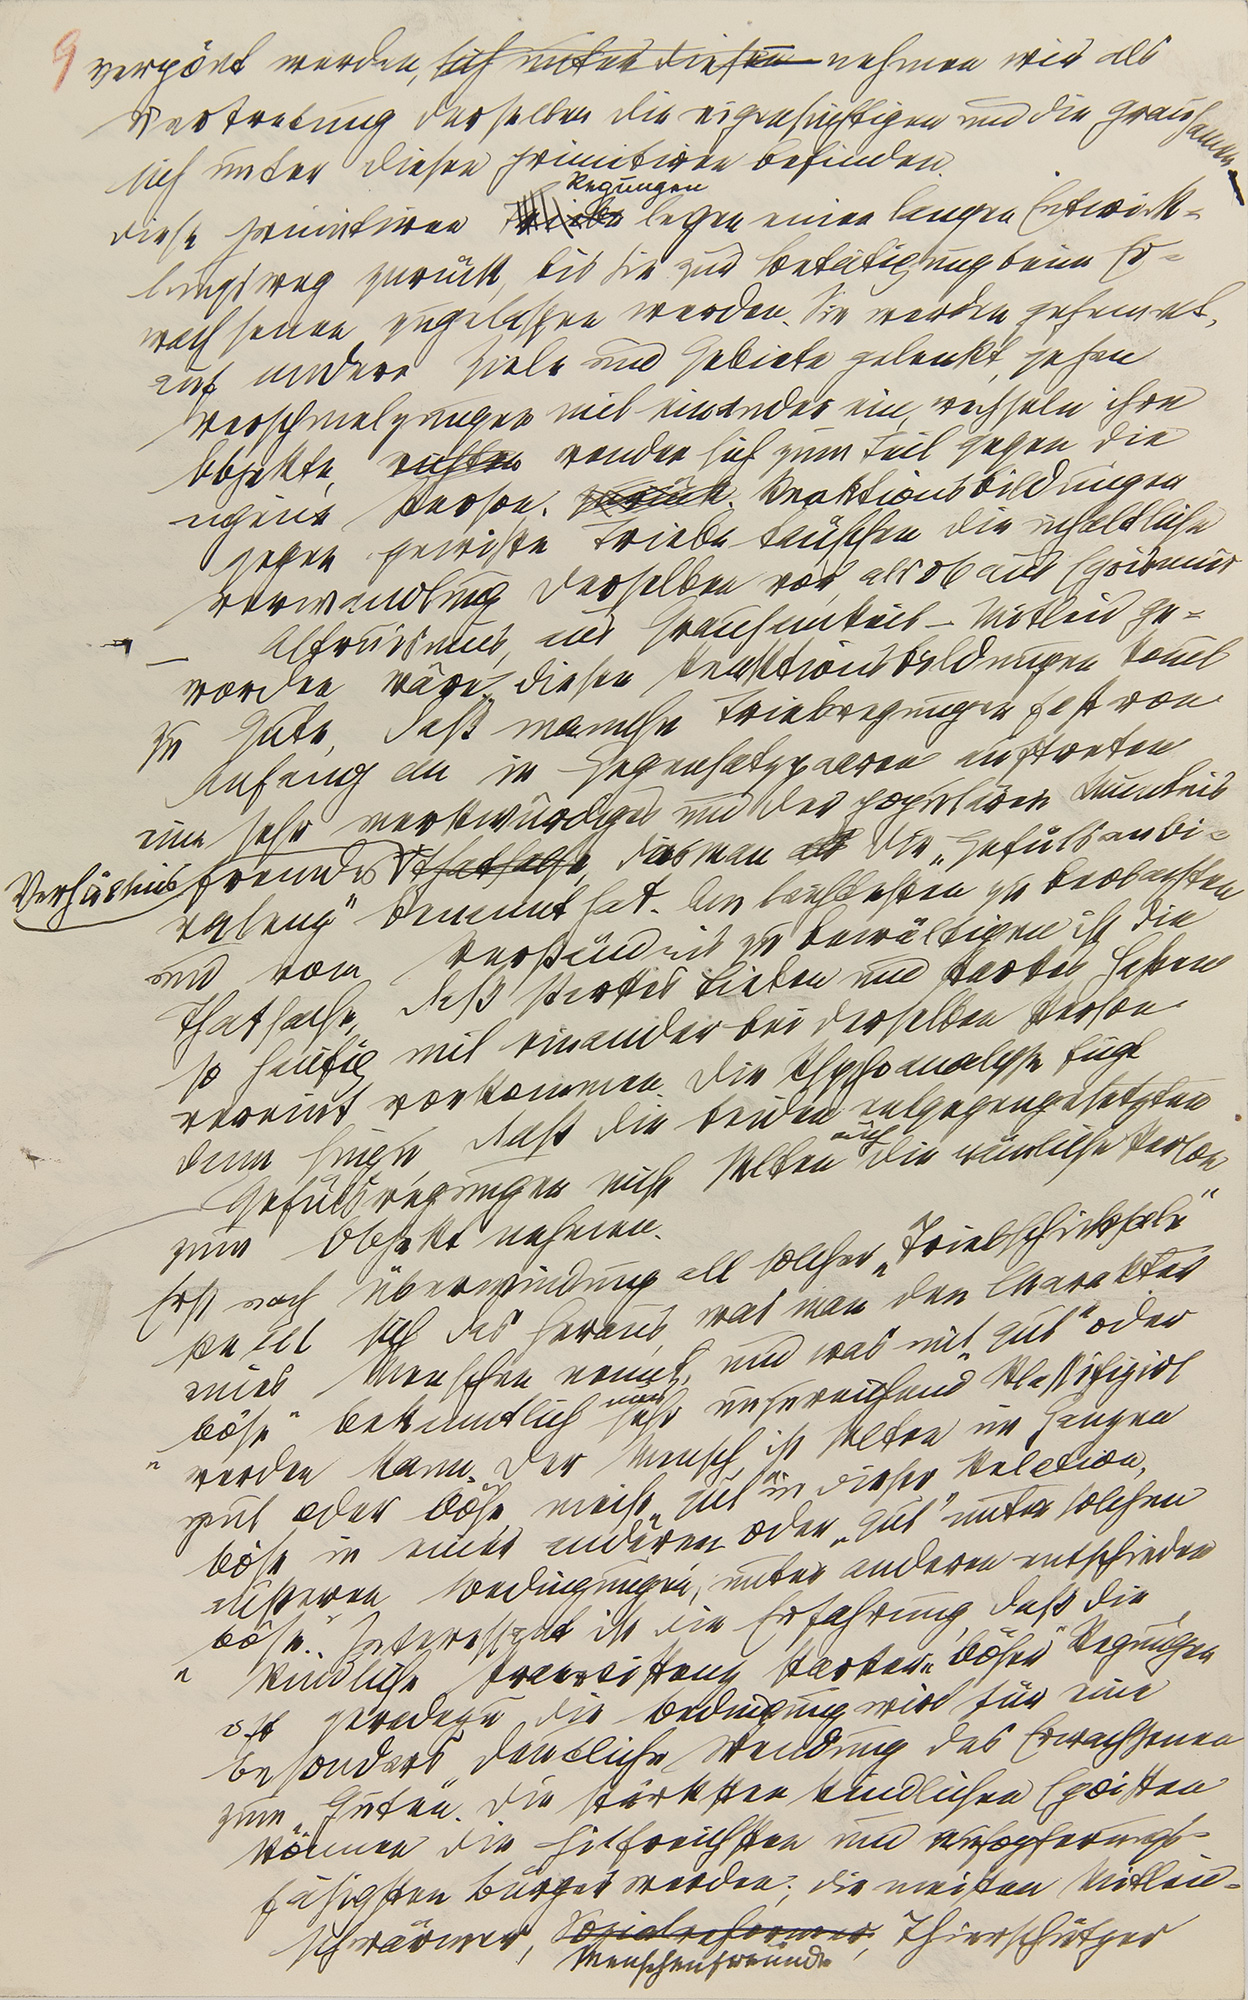 9
verpönt werden, sich unter diesen nehmen wir als
Vertretung derselben die eigensüchtigen und die grausamen
sich unter diesen primitiven befinden.
Regungen
diese primitiven Triebe legen einen langen Entwick-
lungsweg zurück, bis sie zur Betätigung beim Er-
wachsenen zugelassen werden. Sie werden gehemmt,
auf andere Ziele und Gebiete gelenkt, gehen
Verschmelzungen mit einander ein, wechseln ihre
Objekte, richten wenden sich zum Teil gegen die
eigene Person. Reaktionsbildungen
gegen gewisse Triebe täuschen die inhaltliche
Verwandlung derselben vor, als ob aus Egoismus
– Altruismus, aus Grausamkeit – Mitleid ge-
worden wäre. Diesen Reaktionsbildungen komt
zu Gute, daß manche Triebregungen fast von
Anfang an in Gegensatzpaaren auftreten
ein sehr merkwürdiges und der populären Kenntnis
Verhältnis fremdes Thatsache, das man als die „Gefühlsambi-
valenz“ benannt hat. Am leichtesten zu beobachten
und vom Verständnis zu bewältigen ist die
Thatsache, daß starkes Lieben und starkes Hassen
so häufig mit einander bei derselben Person
vereint vorkommen. Die Psychoanalyse fügt
dem hinzu, daß die beiden entgegengesetzten
auch
Gefühlsregungen nicht selten die nämliche Person
zum Objekt nehmen.
Erst nach Überwindung all solcher „Triebschicksale“
stellt sich das heraus, was man den Charakter
eines Menschen nennt, und was mit „gut“ oder
nur
„böse“ bekanntlich sehr unzureichend klassifiziert
werden kann. Der Mensch ist selten im Ganzen
gut oder böse, meist „gut“ in dieser Relation,
„böse“ in einer anderen oder „gut“ unter solchen
äußeren Bedingungen, unter anderen entschieden
„böse“. Interessant ist die Erfahrung, daß die
kindliche Praeexistenz starker „böser“ Regungen
oft geradezu die Bedingung wird für eine
besonders deutliche Wendung des Erwachsenen
zum „Guten“. Die stärksten kindlichen Egoisten
können die hilfreichsten und aufopferungs-
fähigsten Bürger werden; die meisten Mitleid-
schwärmer, Sozialreformer, Thierschützer
Menschenfreunde